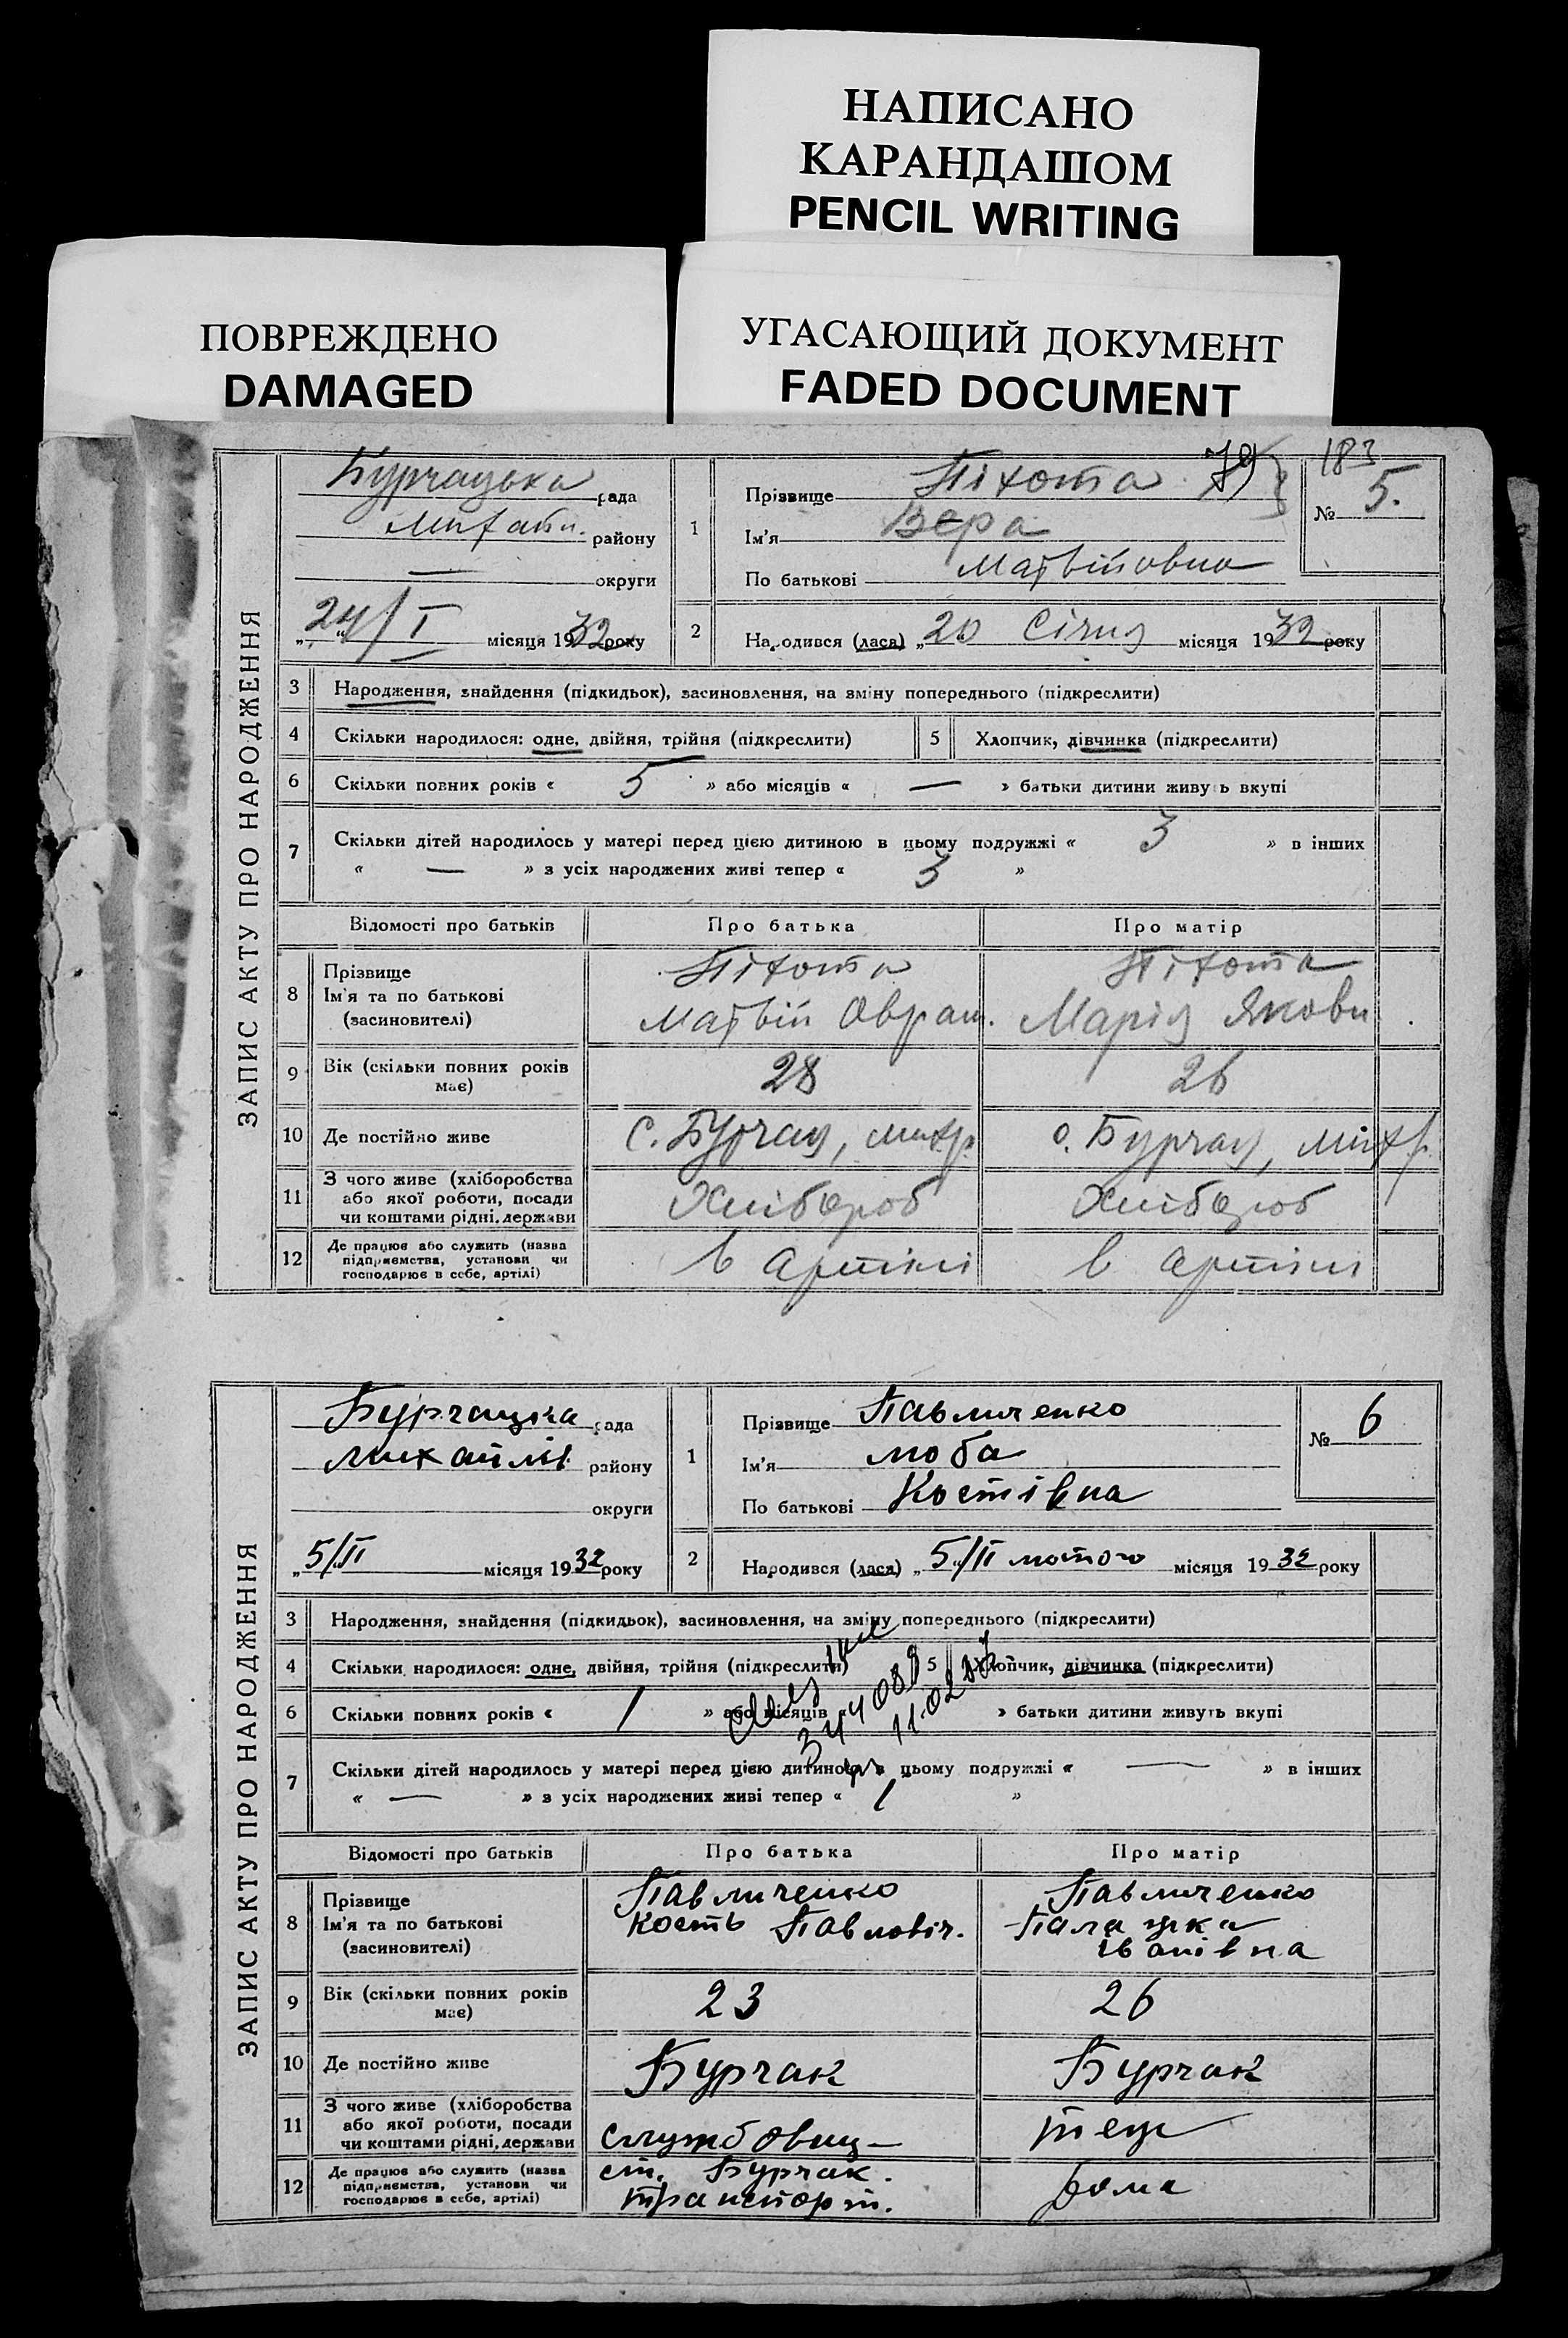 НАПИСАНО
КАРАНДАШОМ
PENCIL WRITING
ПОВРЕЖДЕНО
DAMAGED
УГАСАЮЩИЙ ДОКУМЕНТ
FADED DOCUMENT
ЗАПИС АКТУ ПРО НАРОДЖЕННЯ
183
Бурчацька рада
Михайл. району
— округи
„24/I місяця 1932 року
1
Прізвище Піхота 79
Ім'я Вера
По батькові Матвійовна
№ 5.
2 Народився (лася) „20 Січня місяця 1932 року
3 Народження, знайдення (підкидьок), засиновлення, на зміну попереднього (підкреслити)
4 Скільки народилося: одне, двійня, трійня (підкреслити) 5 Хлопчик, дівчинка (підкреслити)
6 Скільки повних років « 5 » або місяців « — » батьки дитини живуть вкупі
7 Скільки дітей народилось у матері перед цією дитиною в цьому подружжі « 3 » в інших
« — » з усіх народжених живі тепер « 3 »
Відомості про батьків Про батька Про матір
8 Прізвище Піхота Піхота
Ім'я та по батькові Матвій Оврам. Марія Якови
(засновителі)
9 Вік (скільки повних років має) 28 26
10 Де постійно живе с. Бурчак, мих.р. с. Бурчак, мих.р.
11 З чого живе (хліборобства або якої роботи, посади чи коштами рідні, держави Хлібороб Хлібороб
12 Де працює або служить (назва підприємства, установи чи господарює в себе, артілі) в артілі в артілі
ЗАПИС АКТУ ПРО НАРОДЖЕННЯ
Бурчацька рада
Михайлів району
округи
„5/II місяця 1932 року
1
Прізвище Павличенко
Ім'я Люба
По батькові Костівна
№ 6
2 Народився (лася) „5/II лютого місяця 1932 року
3 Народження, знайдення (підкидьок), засиновлення, на зміну попереднього (підкреслити)
4 Скільки народилося: одне, двійня, трійня (підкреслити) 5 Хлопчик, дівчинка (підкреслити)
6 Скільки повних років « 1 » або місяців « » батьки дитини живуть вкупі
7 Скільки дітей народилось у матері перед цією дитиною в цьому подружжі « — » в інших
« — » з усіх народжених живі тепер « 1 »
Відомості про батьків Про батька Про матір
8 Прізвище Павличенко Павличенко
Ім'я та по батькові Кость Павловіч. Палажка
(засиновителі) Іванівна
9 Вік (скільки повних років має) 23 26
10 Де постійно живе Бурчак Бурчак
11 З чого живе (хліборобства або якої роботи, посади чи коштами рідні, держави службовец
12 Де працює або служить (назва підприємства, установи чи господарює в себе, артілі) ст. Бурчак. Дома
транспорт.